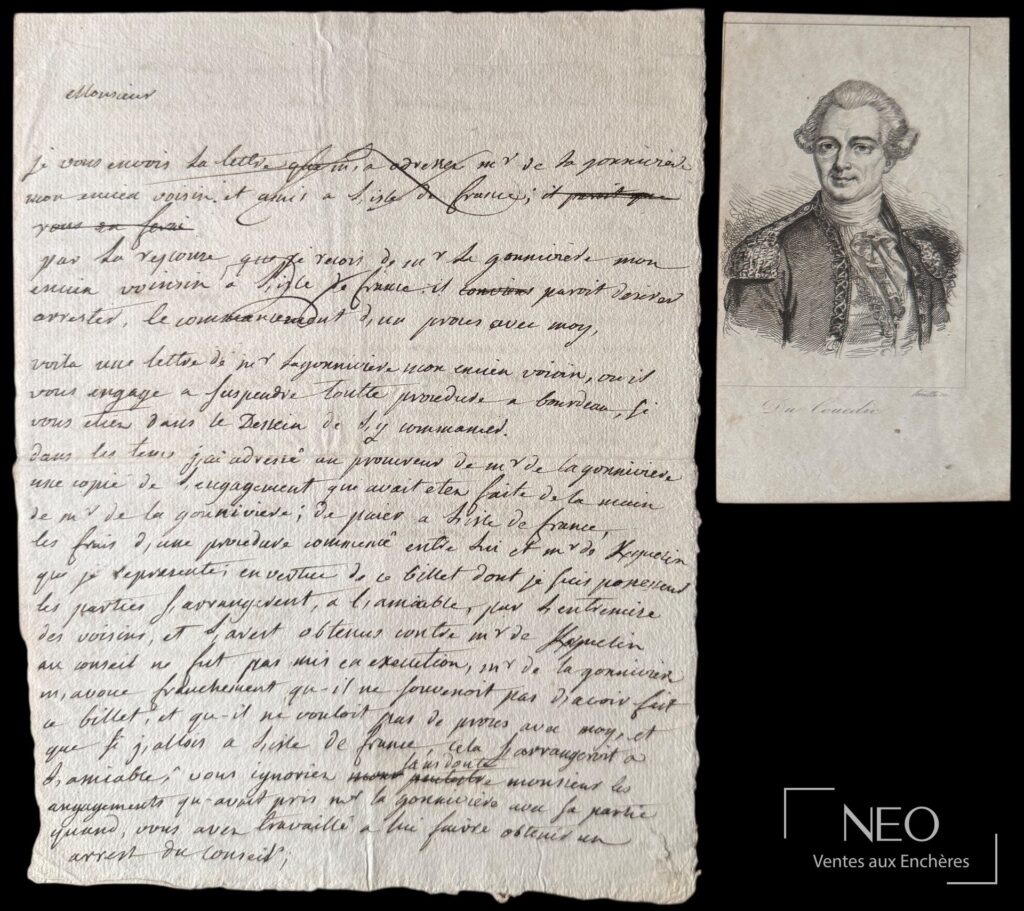 Monsieur
je vous envois la lettre que m'a adressee mr de la gonniviere
mon encien voisin et amis a L,isle de france; il parait que
vous en
par la response que je recois de mr la gonniviere mon
encien voinsin a L,isle de france il paroit desirer
arrester, le commancement d,un proces avec moy,
voila une lettre de mr Lagonniviere mon encien voisin, ou il
vous engage a suspendre toutte procedure a bourdeau, si
vous etiez dans le Dessein de L,y commancer.
dans les tems j,ai adressé au procureur de mr de la gonniviere
une copie de l'engagement qui avait eten faite de la main
de mr de la gonniviere; de paier a L,isle de france,
les frais d,une procedure commencé entre lui et mr de Kerguelin
que je representé; en vertue de ce billet dont je suis possesseur
les parties s,arrangerent, a L,amiable, par L,entremise
des voisins, et L,arest obtenus contre mr de Kerguelin
au conseil ne fut pas mis en exection, mr de la gonniviere
m,avoue franchement qu-il ne souvenoit pas d,avoir fait
ce billet, et qu-il ne vouloit pas de proces avec moy, et
que si j,allois a L,isle de france, cela s,arrangeroit a
L,amiable, vous ignoriez sans doute monsieur les
engagements qu-avait pris mr la gonniviere avec sa partie
quand, vous avez travaillé a lui faire obtenir un
arrest du conseil;
Du Couedic
NEO
Ventes aux Enchères